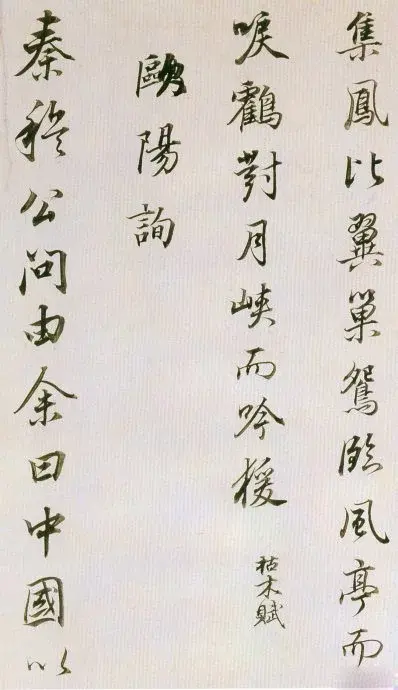 集鳳比翼巢鴛臨風亭而
唳鶴對月峽而吟猨
枯木賦
歐陽詢
秦穆公問由余曰中國以